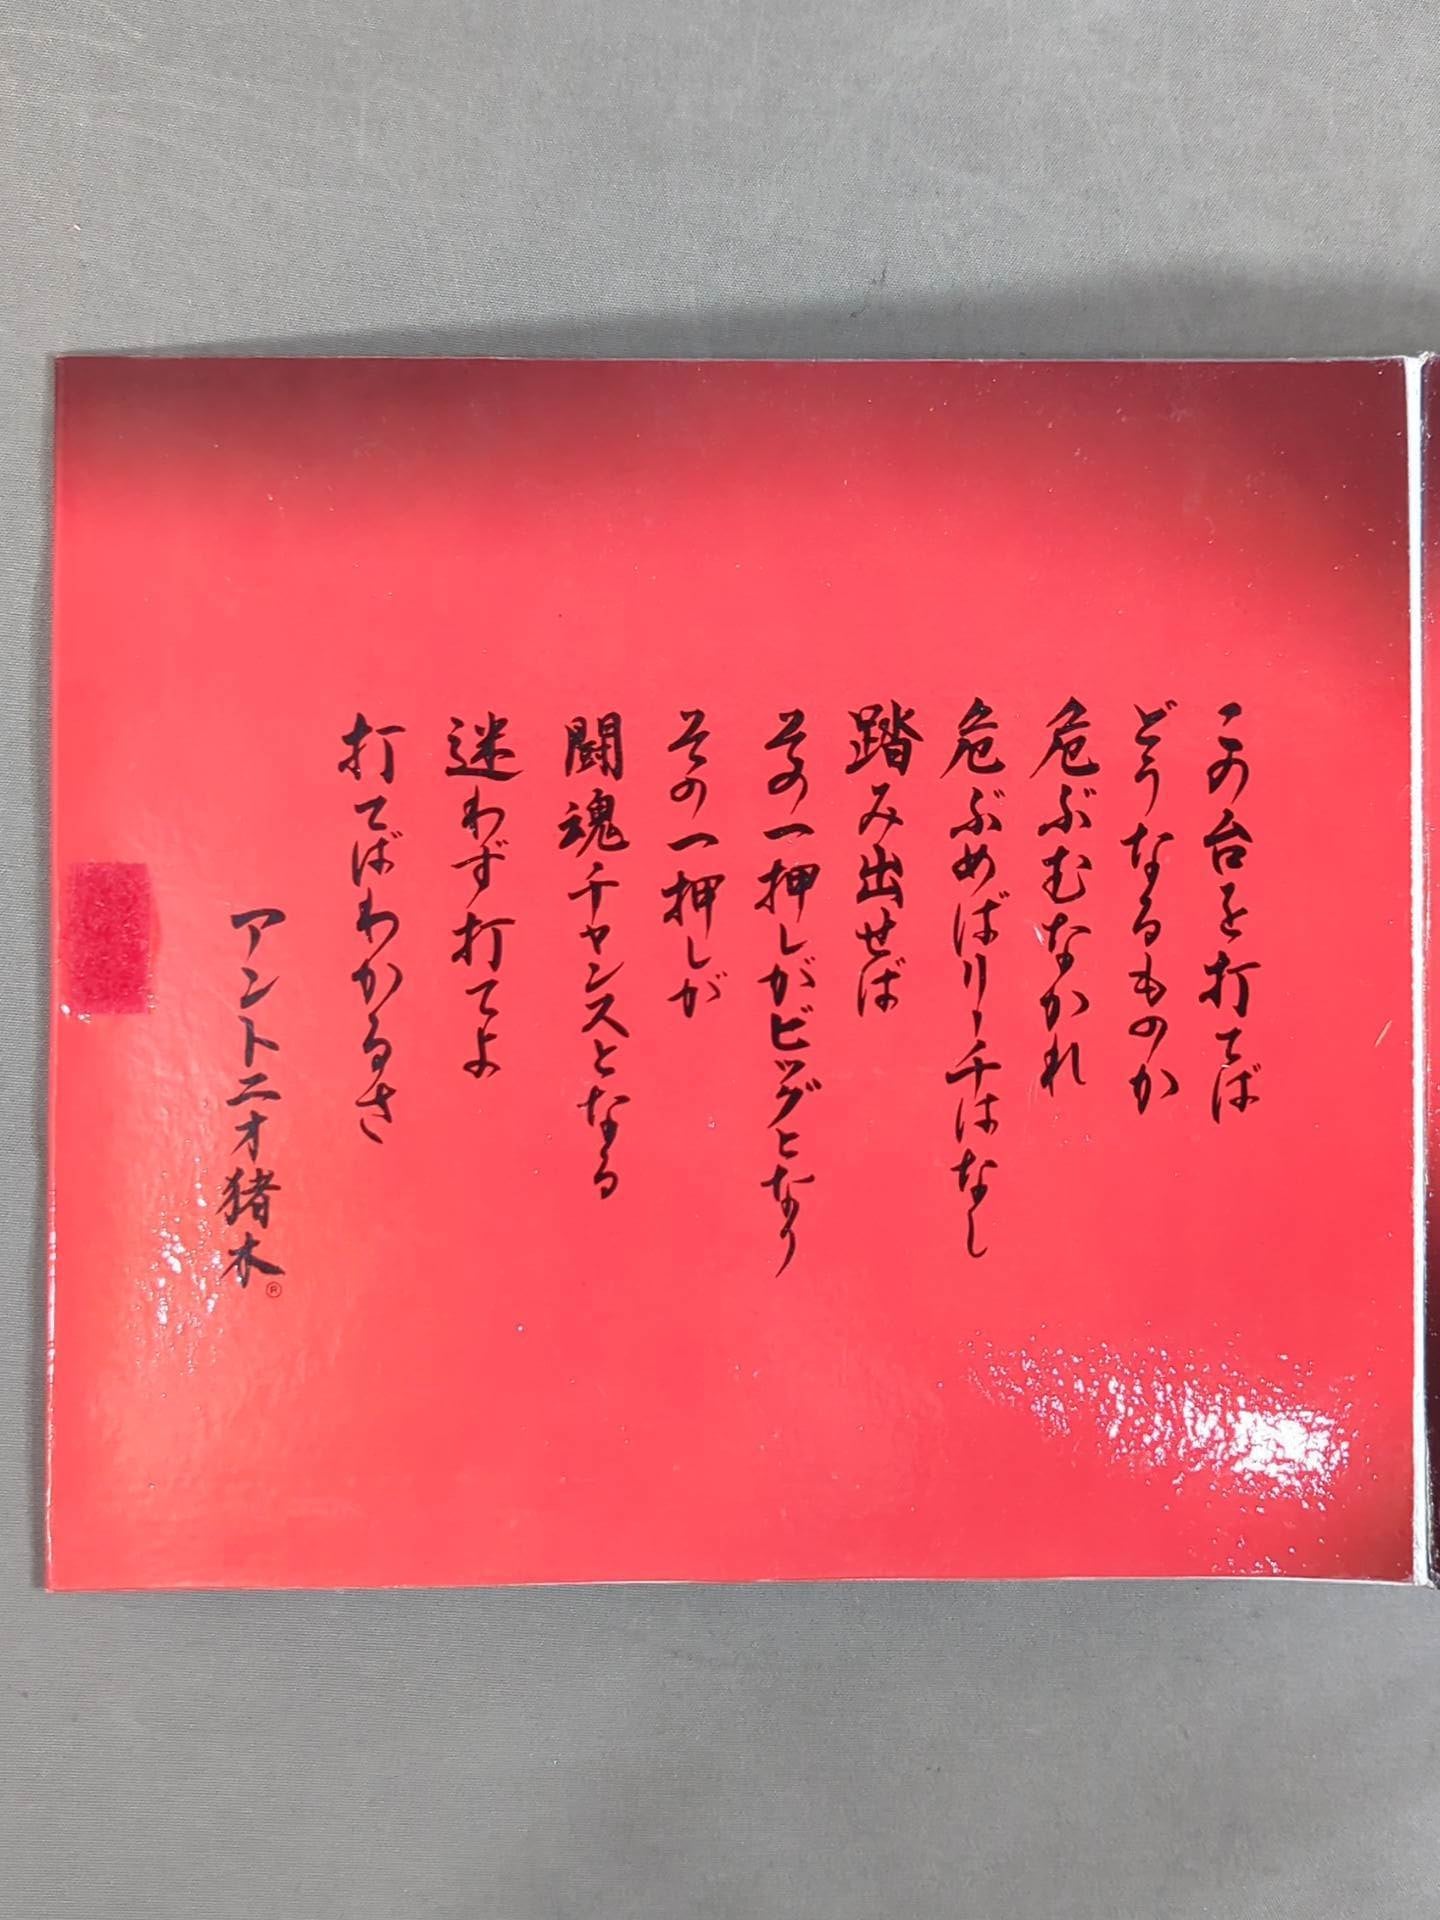 この台を打てば
どうなるものか
危ぶむなかれ
危ぶめばリーチはなし
踏み出せば
その一押しがビッグとなり
その一押しが
闘魂チャンスとなる
迷わず打てよ
打てばわかるさ
アントニオ猪木®